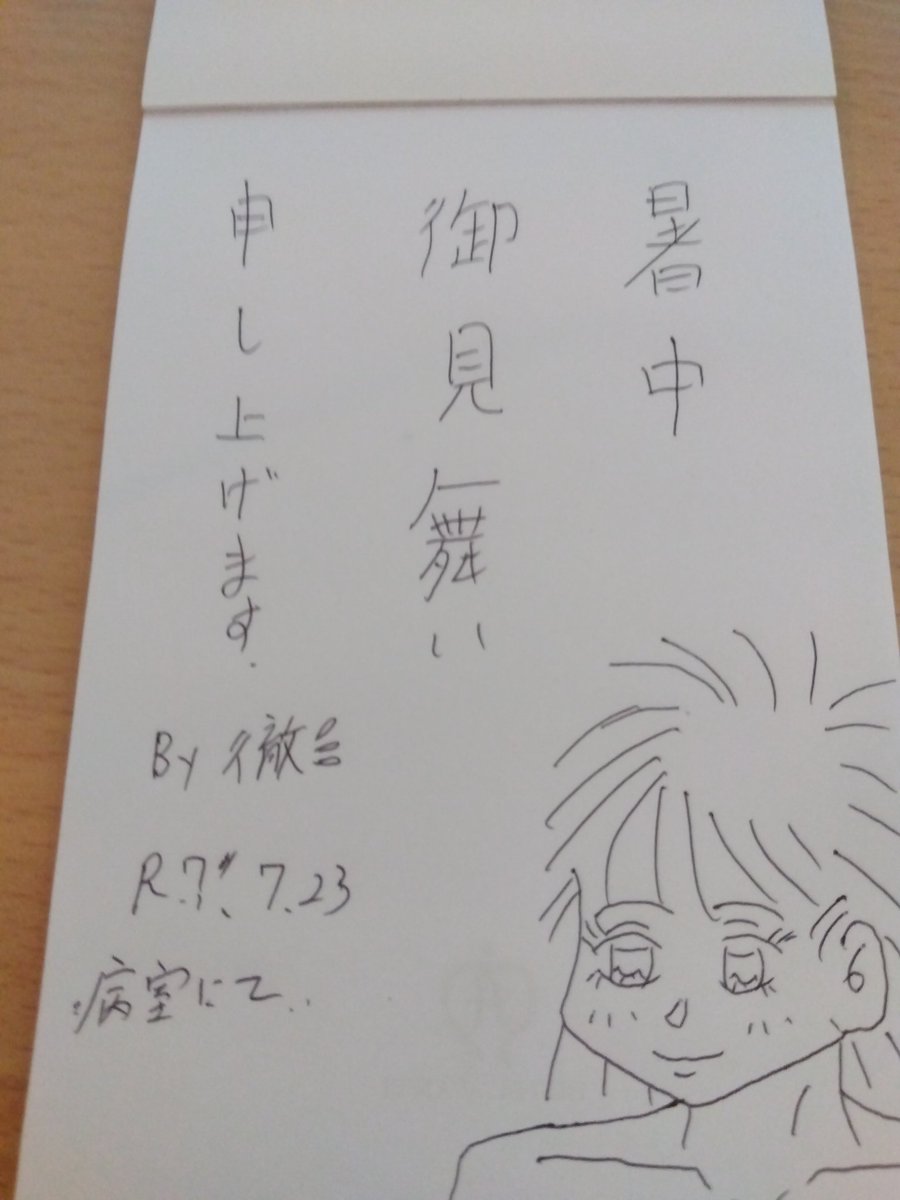 暑中
御見舞い
申し上げます.
By 徹
R.7. 7.23
病室にて..